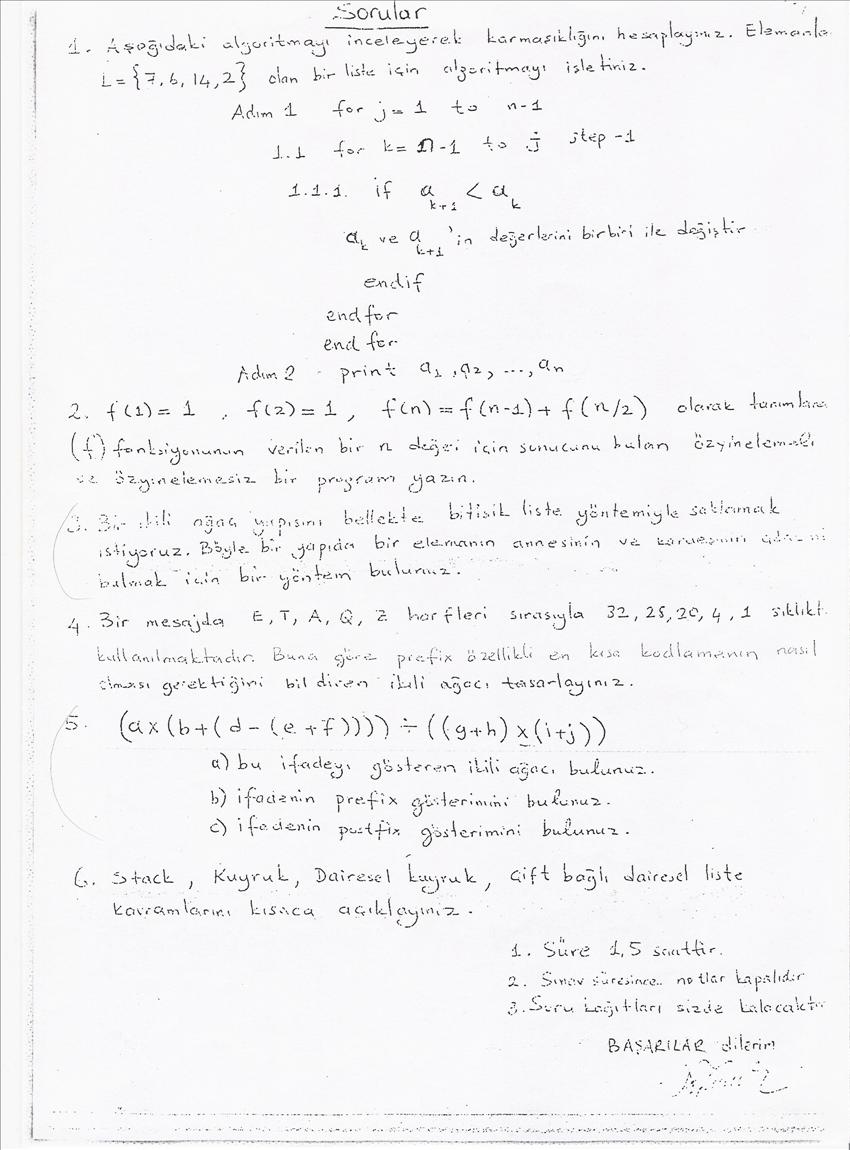 Sorular
1. Aşağıdaki algoritmayı inceleyerek karmaşıklığını hesaplayınız. Elemanla
L={7,6,14,2} olan bir liste için algoritmayı işletiniz.
Adım 1 for j=1 to n-1
1.1 for k=n-1 to j step -1
1.1.1. if a_{k+1} < a_k
a_k ve a_{k+1}'in değerlerini birbiri ile değiştir
endif
endfor
end for
Adım 2 print a_1, a_2, ..., a_n
2. f(1)=1, f(2)=1, f(n)=f(n-1)+f(n/2) olarak tanımlana
(f) fonksiyonunun verilen bir n değeri için sonucunu bulan özyinelemeli
ve özyinelemesiz bir program yazın.
3. Bir ikili ağaç yapısını bellekte bitişik liste yöntemiyle saklamak
istiyoruz. Böyle bir yapıda bir elemanın annesinin ve kardeşinin
bulmak için bir yöntem bulunuz.
4. Bir mesajda E, T, A, Q, Z harfleri sırasıyla 32, 28, 20, 4, 1 sıklıkt
kullanılmaktadır. Buna göre prefix özellikli en kısa kodlamanın nasıl
olması gerektiğini bildiren ikili ağacı tasarlayınız.
5. (a×(b+(d-(e+f))))÷((g+h)×(i+j))
a) bu ifadeyi gösteren ikili ağacı bulunuz.
b) ifadenin prefix gösterimini bulunuz.
c) ifadenin postfix gösterimini bulunuz.
6. Stack, Kuyruk, Dairesel kuyruk, çift bağlı dairesel liste
kavramlarını kısaca açıklayınız.
1. Süre 1,5 saattir.
2. Sınav süresince notlar kapalıdır
3. Soru kağıtları sizde kalacaktır
BAŞARILAR dilerim